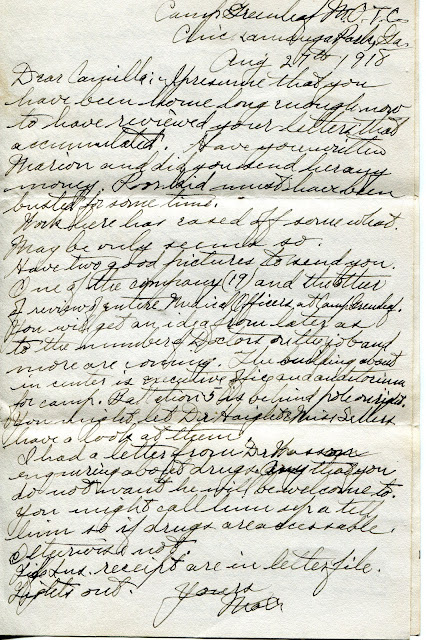 Camp Greenleaf M.O.T.C.
Chickamauga Park, Ga.
Aug 27th 1918
Dear Camilla:- I presume that you
have been home long enough now
to have reviewed your letters that
accumulated. Have you written
Marion and did you send her any
money. Poor kid must have been
busted for some time.
Work here has eased off somewhat.
May be only seems so.
Have two good pictures to send you.
One of the company (19) and the other
of review of entire Medical Officers at Camp Greenleaf.
You will get an idea from later as
to the number of Doctors on the job and
more are coming. The building about
in center is executive office and auditorium
for camp. Battalion 5 is behind pole on right.
You might let Dr Haight & Miss Sellers
have a look at them.
I had a letter from Dr Wasson
enquiring about drugs. Any that you
do not want he will be welcome to.
You might call him up & tell
him so if drugs are accessable.
Otherwise not.
Life Ins. receipt are in letter file.
Lights out. Yours